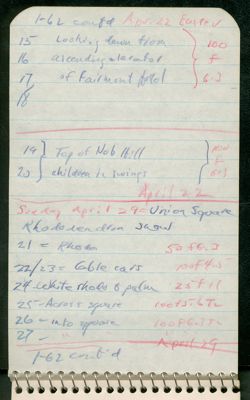 1-62 cont'd April 22 Easter
15 Looking down from 100
16 ascending elevator f
17 of Fairmont Hotel 6.3
18
19 Top of Nob Hill 100 f
20 children in swings 6.3
April 22
Sunday April 29 - Union Square
Rhododendron show
21 = Rhodo 50 f 6.3
22/23 = Cable cars 100 f 4.5
24 - White rhodo & palm 25 f 11
25 - Across square 100 f 5.6
26 - into square 100 f 6.3
27 - "
April 29
1-62 cont'd